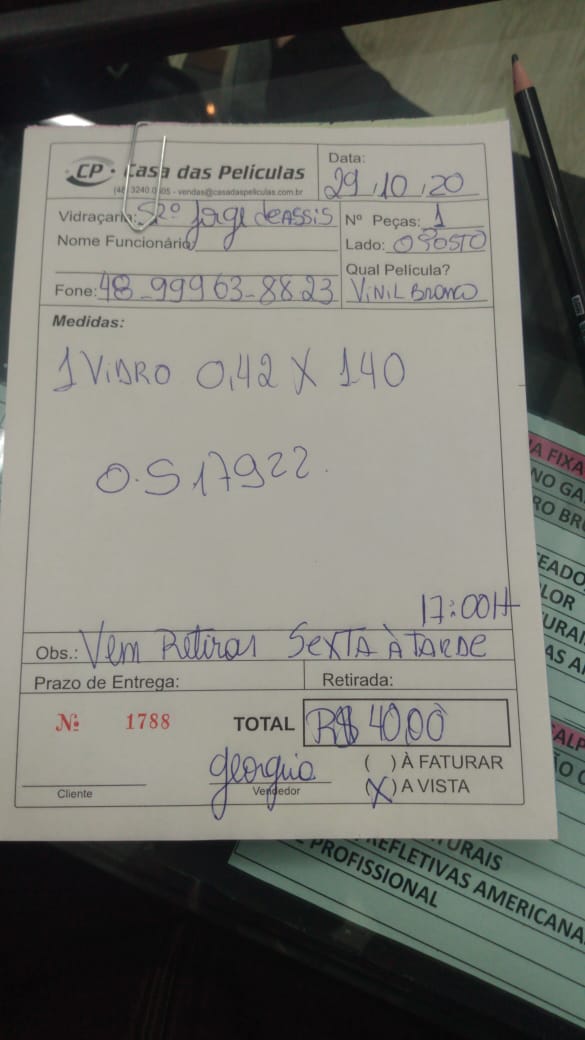 CP Casa das Películas
(48) 3240.0505 - vendas@casadaspeliculas.com.br
Data:
29,10,20
Vidraçaria: Sr° Jorge de ASSIS
Nome Funcionário
Fone: 48-99963-8823
Nº Peças: 1
Lado: OPOSTO
Qual Película?
VINIL BRANCO
Medidas:
1 VIDRO 0,42 X 1.40
O.S 17922.
17:00H
Obs.: Vem Retirar SEXTA À TARDE
Prazo de Entrega:
Retirada:
Nº 1788
TOTAL R$ 40,00
georgia
Cliente
Vendedor
( ) À FATURAR
(X) A VISTA
A FIXA
NO GA
RO BR
EADO
LOR
URAI
AS A
ALP
ÃO C
TURAIS
REFLETIVAS AMERICANA
PROFISSIONAL